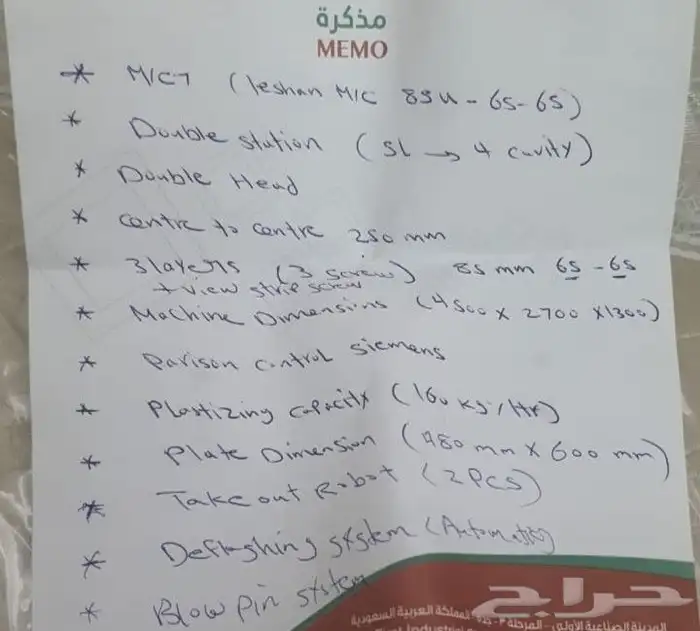 مذكرة
MEMO
* M/C1 (leshan M/C 85u - 65-65)
* Double station (5L → 4 cavity)
* Double Head
* Centre to centre 250 mm
* 3 layers (3 screw) 85 mm 65 - 65
+ view strip screw
* Machine Dimensions (4500 x 2700 x 1300)
* Parison control siemens
* Plastizing capacity (160 kg/Hr)
* Plate Dimension (480 mm x 600 mm)
* Take out Robot (2 Pcs)
* Deflashing system (Automatic)
* Blow pin system
المملكة العربية السعودية
المدينة الصناعية الأولى - المرحلة
حراج